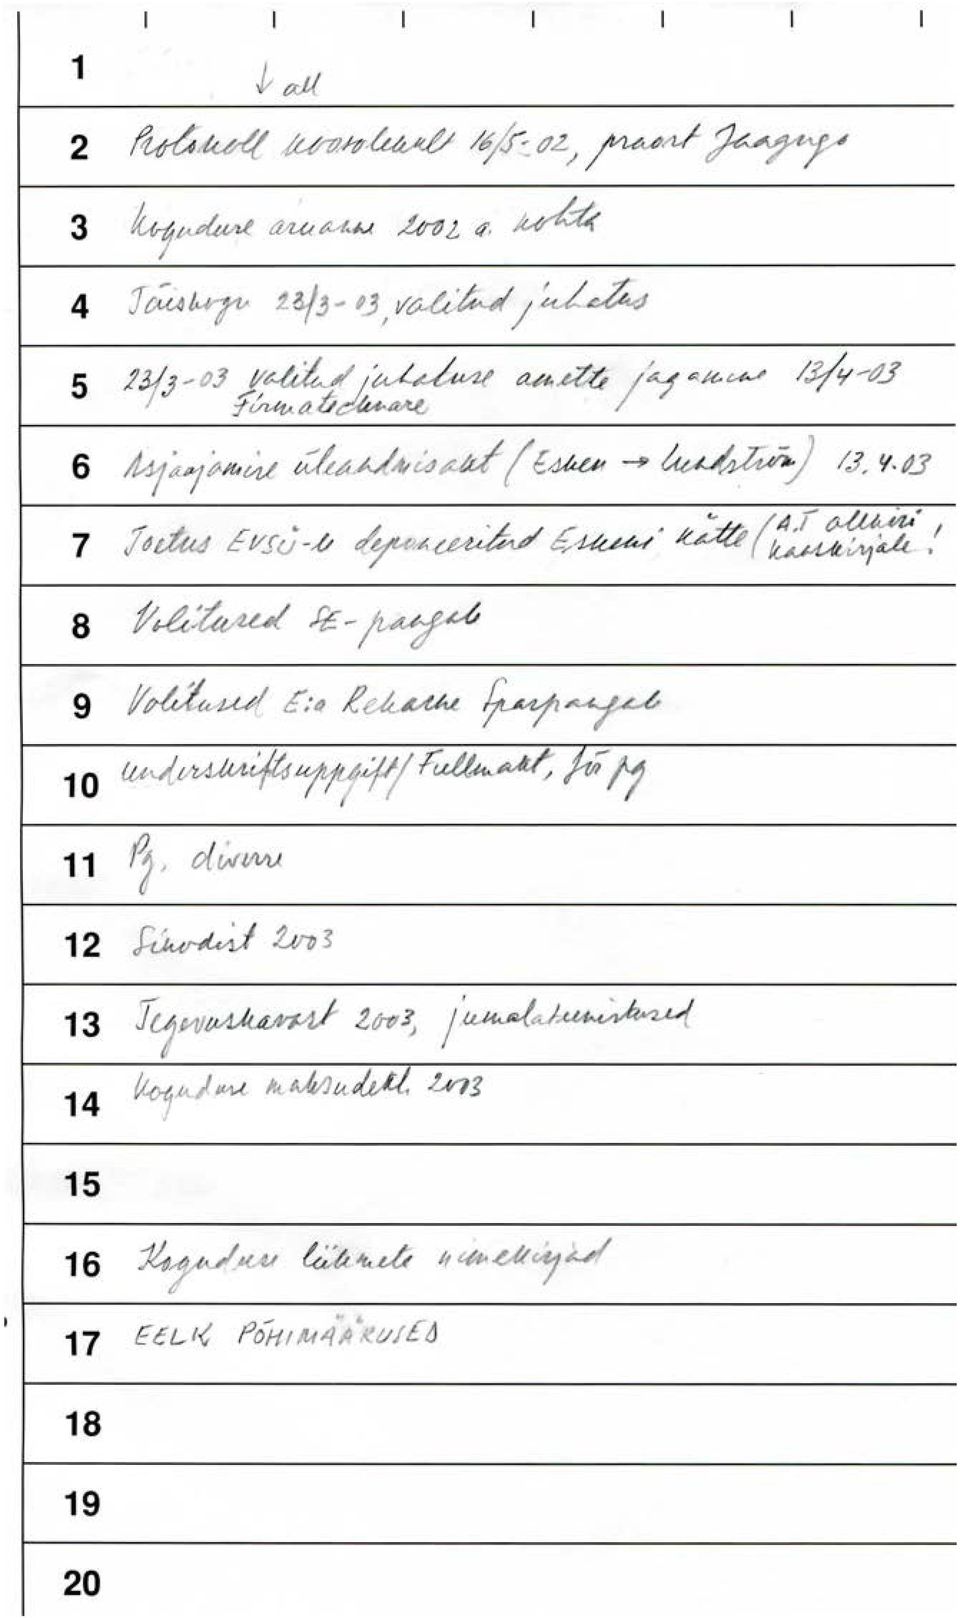 1 ↓ all
2 Protokoll koosolekult 16/5-02, praost Jaaguga
3 Koguduse aruanne 2002 a. kohta
4 Täiskogu 23/3-03, valitud juhatus
5 23/3-03 valitud juhatuse amette jagamine 13/4-03
Firmatecknare
6 Asjaajamise üleandmisakt (Esken → Lundström) 13.4.03
7 Toetus EVSÜ-le deponeeritud Eskeni kätte (A.T allkiri
kaaskirjale!
8 Volitused SE-pangale
9 Volitused E:a Rekarne Sparpangale
10 underskriftsuppgift/Fullmakt, för pg
11 Pg. diverse
12 Sinodist 2003
13 Tegevuskavast 2003, jumalateenistused
14 Koguduse maksudekl. 2003
15
16 Koguduse liikmete nimekirjad
17 EELK PÕHIMÄÄRUSED
18
19
20